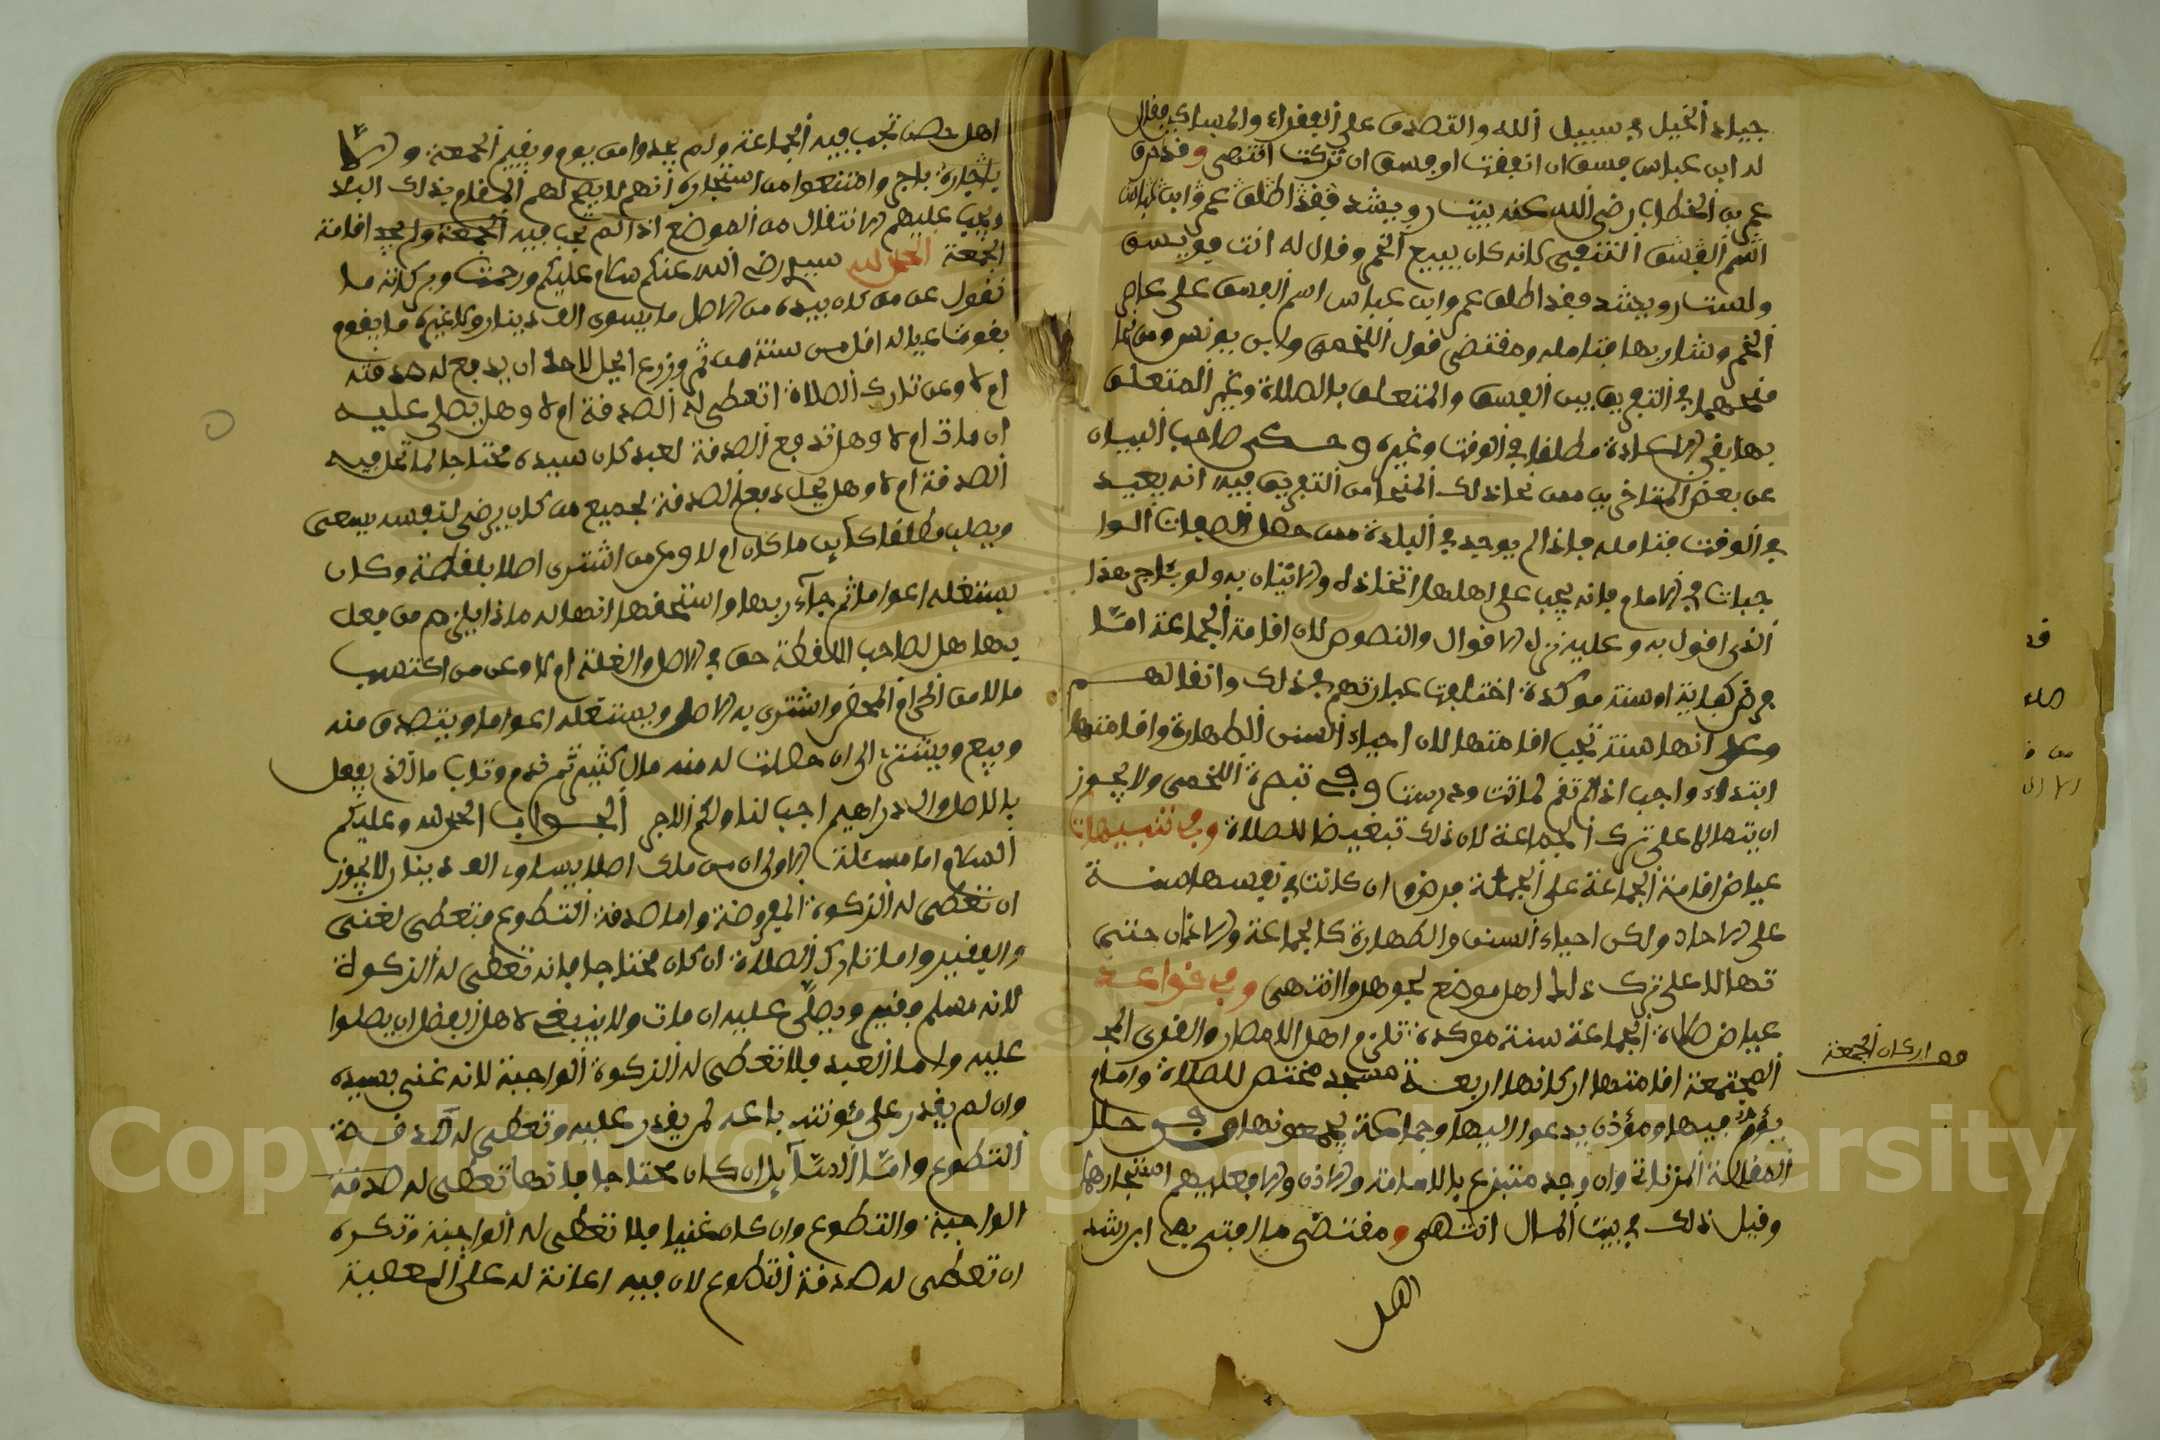 جياد الخيل في سبيل الله والتصدق على الفقراء والمساكين فقال
له ابن عباس فسق ان انفقت او فسق ان تركت انتهى وقد حرق
عمر بن الخطاب رضي الله عنه بيت رويشد فقد اطلق عمر وابن عباس
اسم الفسق الثقفي لانه كان يبيع الخمر وقال له انت فويسق
ولست رويشد فقد اطلق عمر وابن عباس اسم الفسق على عاصر
الخمر وشاربها فتامله ومقتضى قول اللخمي وابن يونس ومن نحا
منحهما في التفريق بين الفسق والمتعلق بالصلاة وغير المتعلق
بها نفي الاعادة مطلقا في الوقت وغيره وحكى صاحب البيان
عن بعض المتاخرين ممن نحا ذلك المنحا من التفريق فيه انه يعيد
في الوقت فتامله فاذا لم يوجد في البلدة من حصل الصفات الوا
جبات في الامام فانه يجب على اهلها اتخاذه والاتيان به ولو باجر هذا
الذي اقول به وعليه تدل الاقوال والنصوص لان اقامة الجماعة اما
فرض كفاية او سنة مؤكدة اختلفت عبارتهم في ذلك واتفاقهم
وعلى انها سنة تجب اقامتها لان احياء السنن الظهارة واقامتها
ابتداء واجب اذا لم تقم لماتت ودرست وفي تبصرة اللخمي ولا يجوز
ان يتمالا على ترك الجماعة لان ذلك تبغيض للصلاة وفي تنبيهات
عياض اقامة الجماعة على الجملة فرض وان كانت في نفسها سنة
على الاحاد ولكن احياء السنن والظهارة كالجماعة والاذان حتى
تمالا على ترك ذلك اهل موضع لجوهدوا انتهى وفي قواعد
عياض صلاة الجماعة سنة مؤكدة تلزم اهل الامصار والقرى المجـ
المجتمعة اقامتها اركانها اربعة مسجد مختص للصلاة وامام
يؤم فيها ومؤذن يدعوا اليها وجماعة يجمعونها وفي حلل
المقالة وان وجد متبرع بالامامة والاذان والا فعليهم استئجارهما
وقيل ذلك في بيت المال انتهى ومقتضى ما افتى به ابن رشد
اهل
قف اركان الجمعة
اهل حصن تجب فيه الجماعة ولم يجدوا من يوم ويقيم الجمعة والا
باجارة باجر وامتنعوا من استئجاره انهم لا يصح لهم المقام بذلك البلد
ويجب عليهم الانتقال من الموضع اذا لم تجب فيه الجمعة ولم يجد اقامة
الجمعة الحمد لله سيدي رضي الله عنكم سلام عليكم ورحمت وبركاته ما
تقول عن من كان بيده من الاصل ما يسوى الف دينار ولا غيره ما يقوم
بقوت عياله اقل من سنة من ثمر وزرع ايحل لاحد ان يدفع له صدقته
ام لا وعن تارك الصلاة اتعطى له الصدقة ام لا وهل يصلى عليه
ان مات ام لا وهل تدفع الصدقة لعبد كان سيده محتاجا لما تحل فيه
الصدقة ام لا وهل يحل دفع الصدقة لجميع من كان يرضى لنفسه يسعى
ويطلب مطلقا كاين ما كان ام لا وعن من اشترى اصلا بلفطة وكان
يستغله اعواما ثم جاء ربها واستحقها انها له ماذا يلزم من فعل
بها هل لصاحب اللقطة حق في الاصل والغلة ام لا وعن من اكتسب
مالا من الحرام المحض واشترى به الاصل ويستغله اعواما ويتصدق منه
ويبيع ويشتري الى ان حصلت له منه مال كثير ثم ندم وتاب ماذا يفعل
بالاصل والدراهيم اجب لنا ولكم الاجر الجواب الحمد لله وعليكم
السلام اما مسئلة الاولى ان من ملك اصلا يساوي الف دينار لا يجوز
ان تعطى له الزكوة المفروضة واما صدقة التطوع فتعطى لغني
والفقير واما تارك الصلاة ان كان محتاجا فانه تعطى له الزكوة
لانه مسلم وفقير ويصلى عليه ان مات ولا ينبغي لاهل الفضل ان يصلوا
عليه واما العبد فلا تعطى له الزكوة الواجبة لانه غني بسيده
وان لم يقدر على مئونته باعه لمن يقدر عليه وتعطى له صدقة
التطوع واما السائل ان كان محتاجا فانها تعطى له صدقة
الواجبة والتطوع وان كان غنيا فلا تعطى له الواجبة وتكره
ان تعطى له صدقة التطوع لان فيه اعانة له على المعصية
Copyright © King Saud University